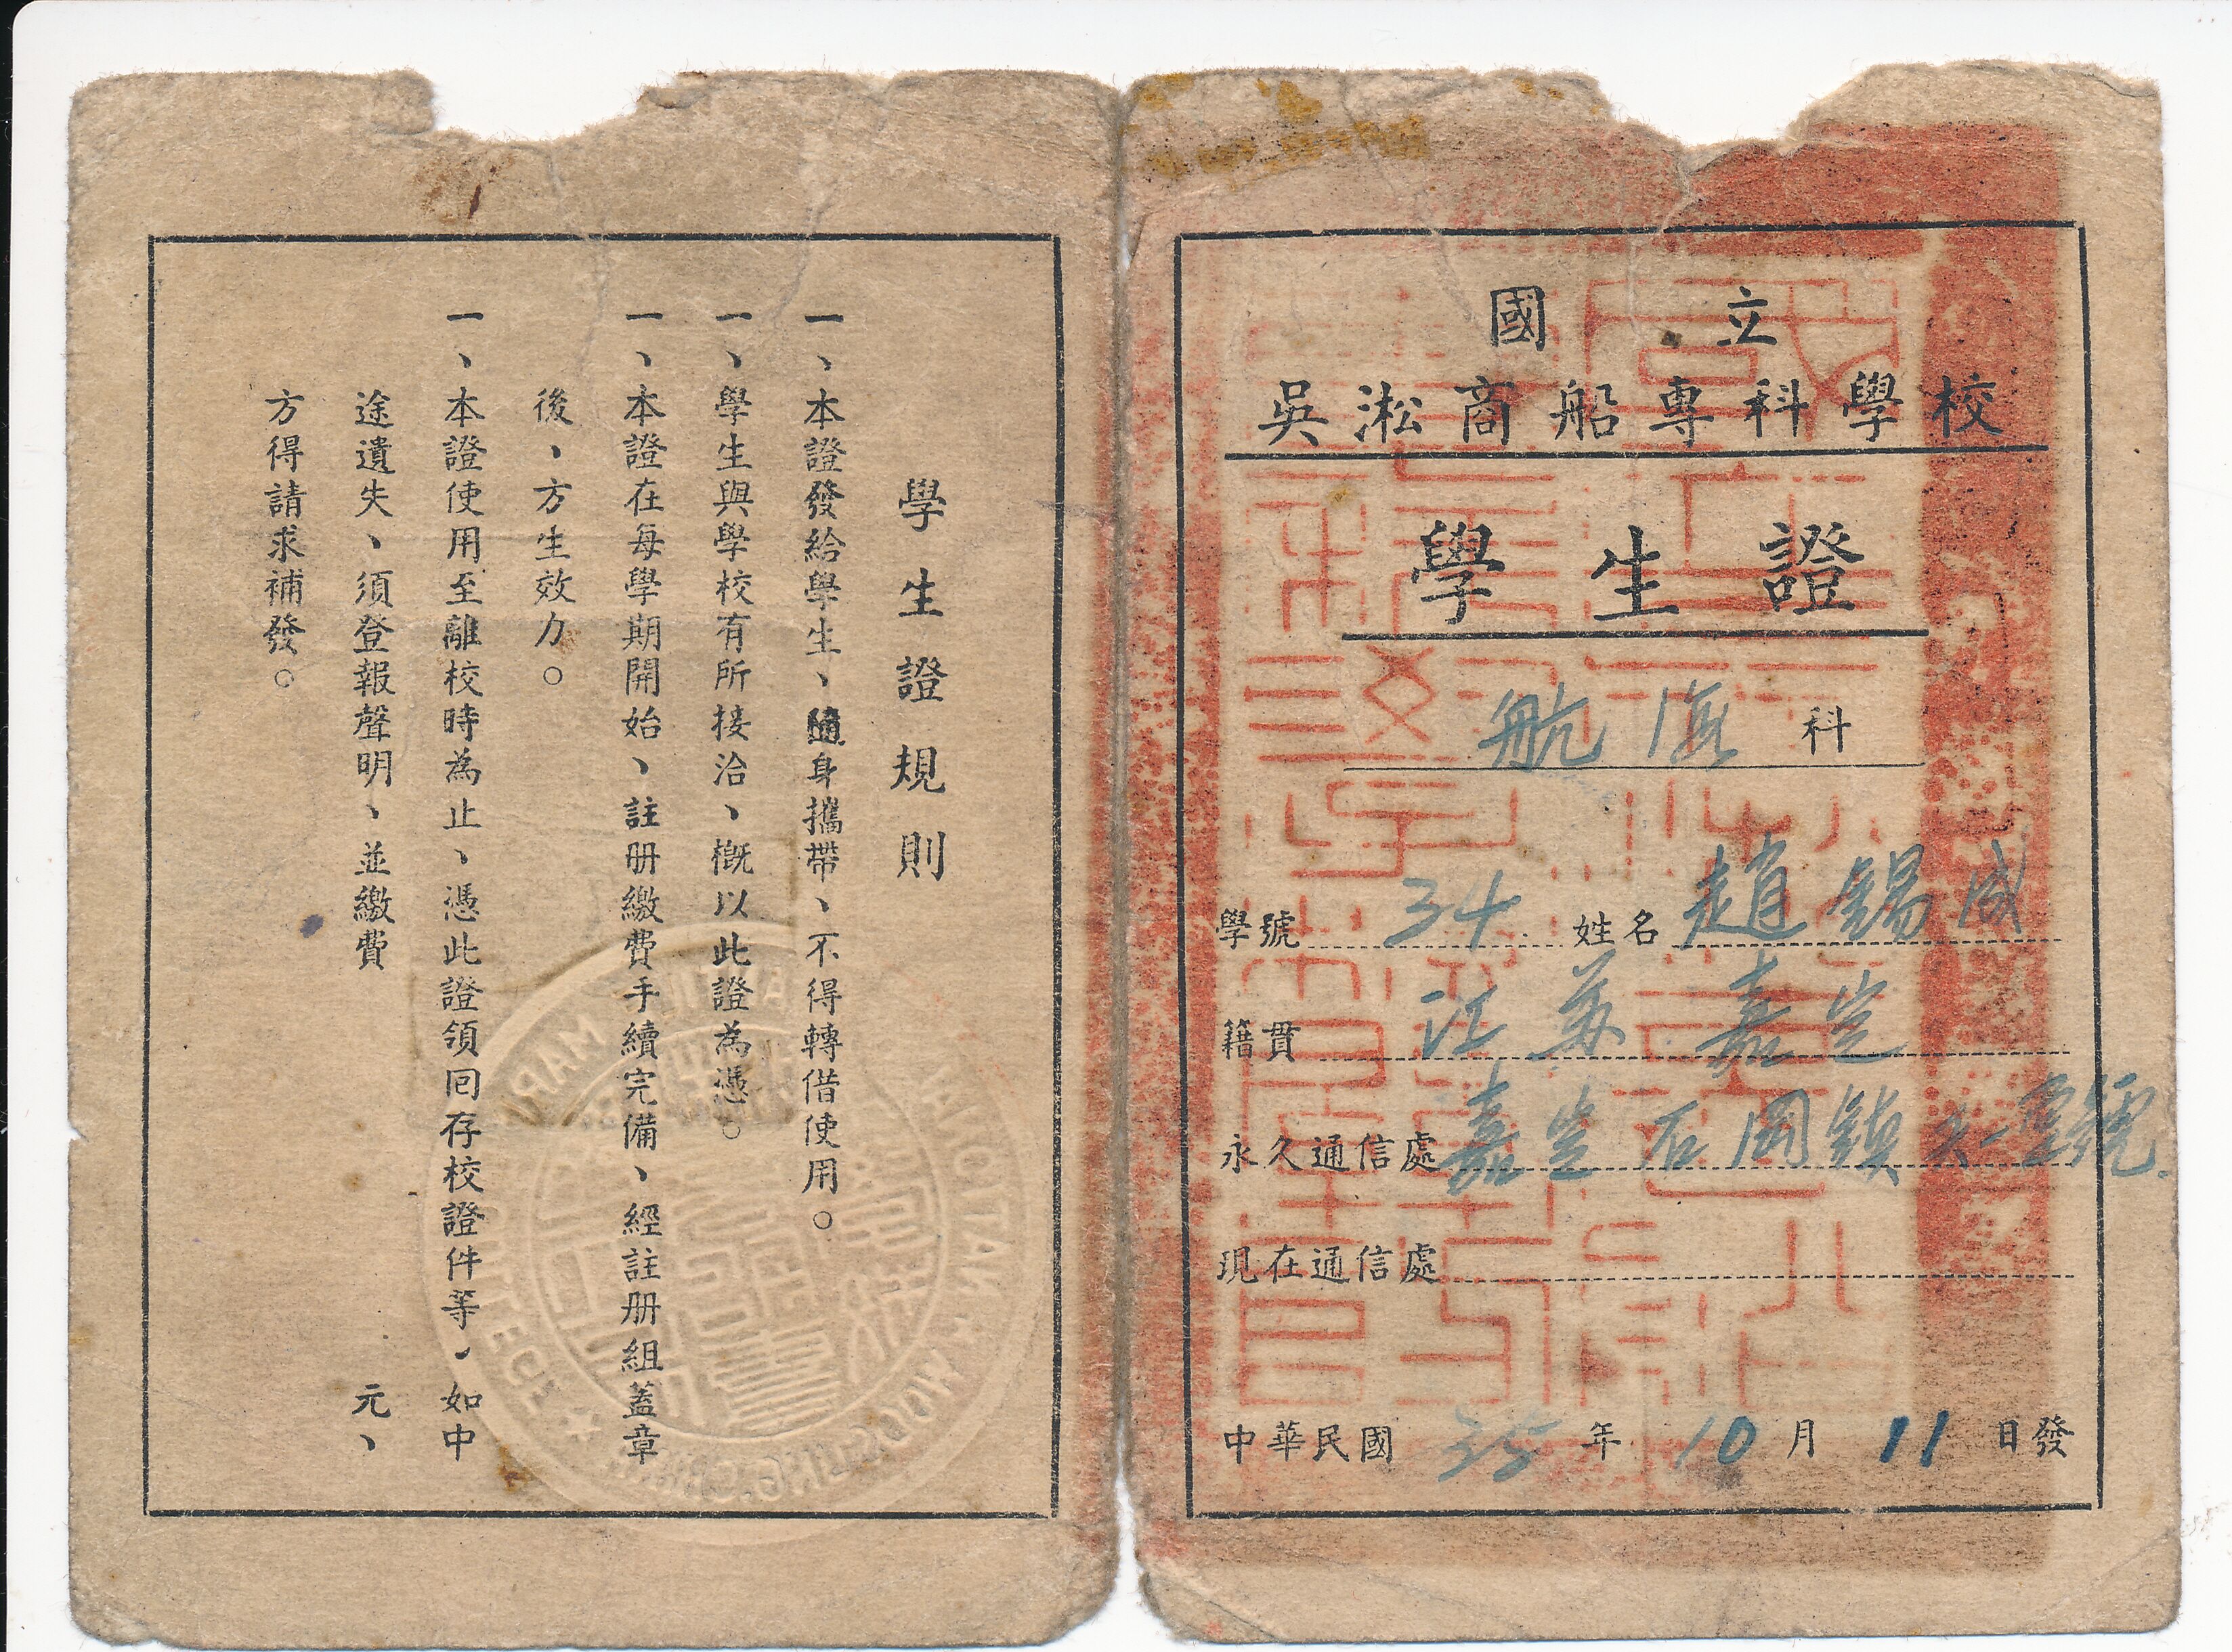 國立
吳淞商船專科學校
學生證
航海科
學號 34 姓名 趙錫成
籍貫 江苏 嘉定
永久通信處 嘉定石岡鎮
現在通信處
中華民國 35 年 10 月 11 日發
學生證規則
一、本證發給學生、隨身攜帶、不得轉借使用。
一、學生與學校有所接洽、概以此證為憑。
一、本證在每學期開始、註册繳費手續完備、經註册組蓋章
後、方生效力。
一、本證使用至離校時為止、憑此證領囘存校證件等、如中
途遺失、須登報聲明、並繳費 元、
方得請求補發。